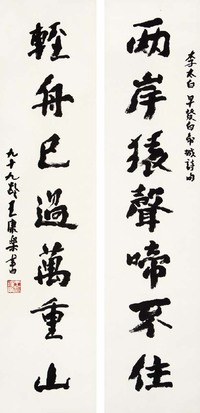 李太白早發白帝城詩句
兩岸猿聲啼不住
輕舟已過萬重山
九十九齡王康樂書